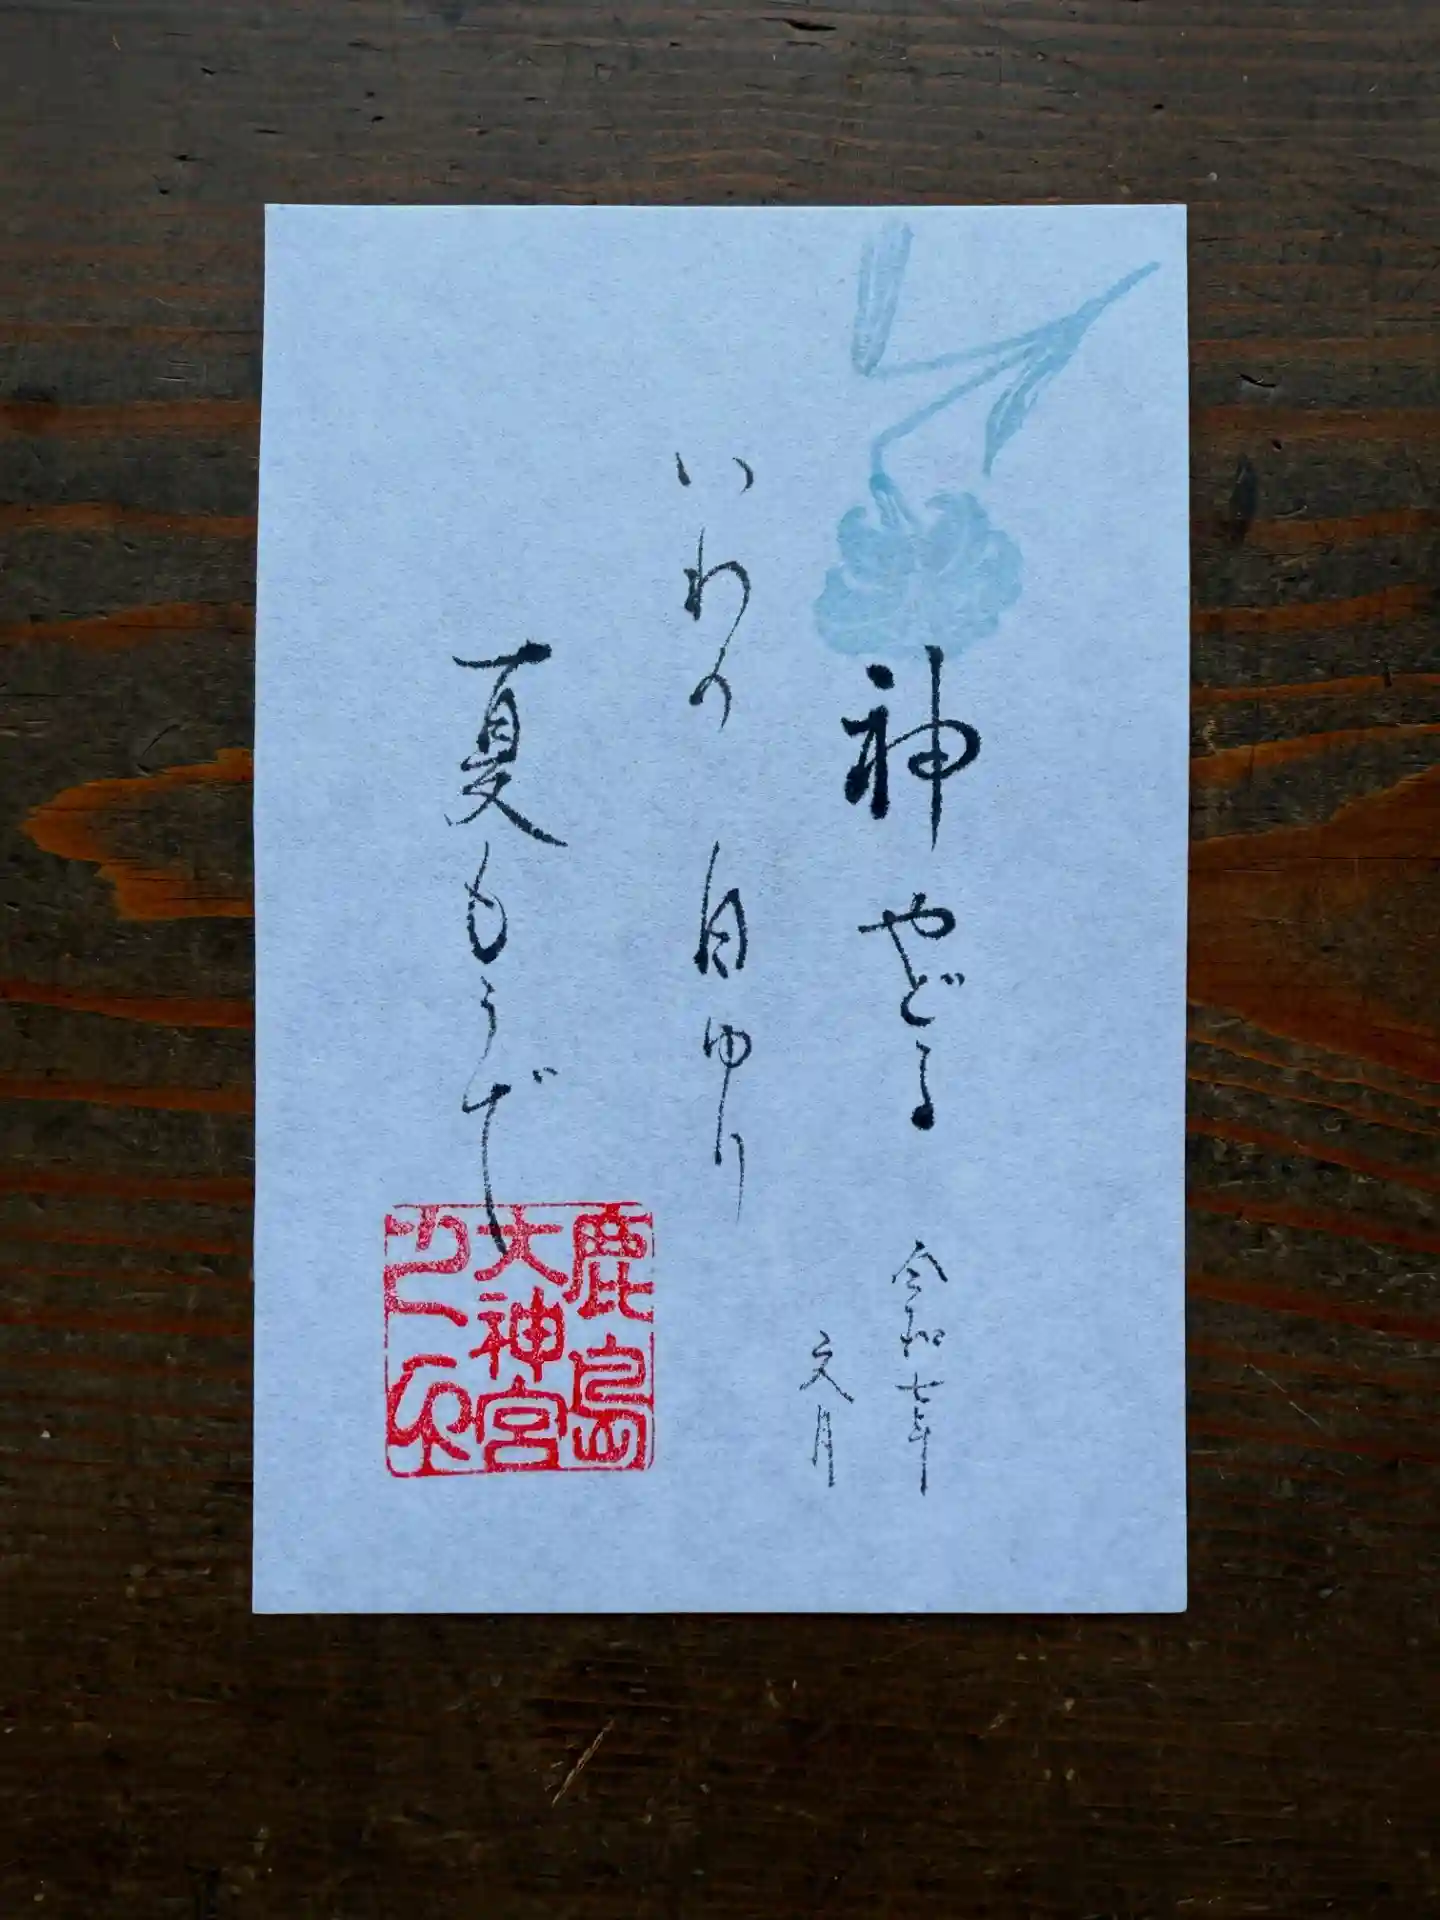 神やどる
いわの 白ゆり
夏もうで
令和七年
文月
鹿島
大神宮
之印